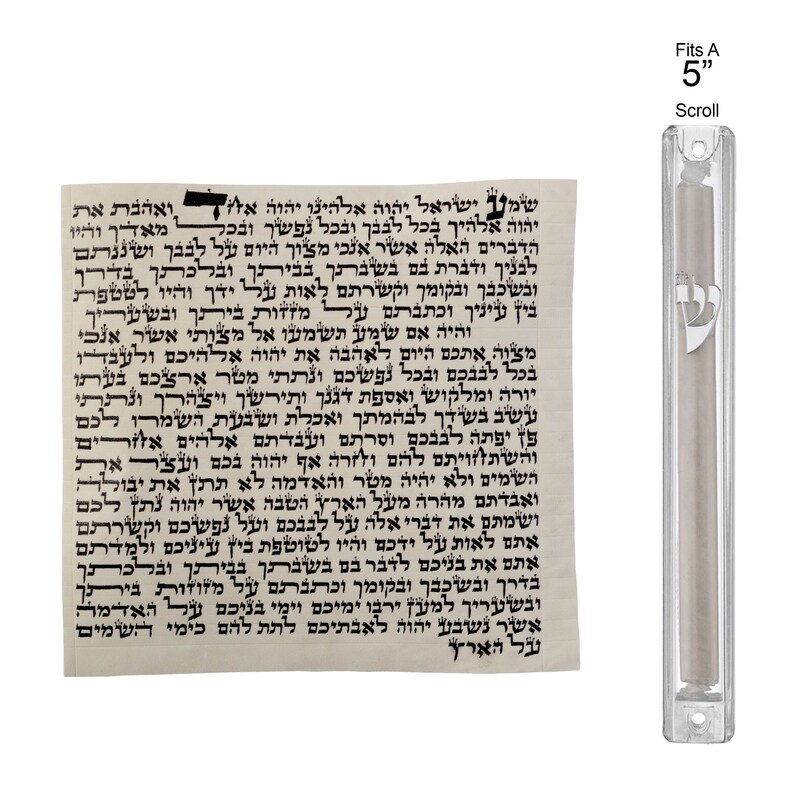 Fits A
5”
Scroll
שמע ישראל יהוה אלהינו יהוה אחד ואהבת את
יהוה אלהיך בכל לבבך ובכל נפשך ובכל מאדך והיו
הדברים האלה אשר אנכי מצוך היום על לבבך ושננתם
לבניך ודברת בם בשבתך בביתך ובלכתך בדרך
ובשכבך ובקומך וקשרתם לאות על ידך והיו לטטפת
בין עיניך וכתבתם על מזזות ביתך ובשעריך
והיה אם שמע תשמעו אל מצותי אשר אנכי
מצוה אתכם היום לאהבה את יהוה אלהיכם ולעבדו
בכל לבבכם ובכל נפשכם ונתתי מטר ארצכם בעתו
יורה ומלקוש ואספת דגנך ותירשך ויצהרך ונתתי
עשב בשדך לבהמתך ואכלת ושבעת השמרו לכם
פן יפתה לבבכם וסרתם ועבדתם אלהים אחרים
והשתחויתם להם וחרה אף יהוה בכם ועצר את
השמים ולא יהיה מטר והאדמה לא תתן את יבולה
ואבדתם מהרה מעל הארץ הטבה אשר יהוה נתן לכם
ושמתם את דברי אלה על לבבכם ועל נפשכם וקשרתם
אתם לאות על ידכם והיו לטוטפת בין עיניכם ולמדתם
אתם את בניכם לדבר בם בשבתך בביתך ובלכתך
בדרך ובשכבך ובקומך וכתבתם על מזוזות ביתך
ובשעריך למען ירבו ימיכם וימי בניכם על האדמה
אשר נשבע יהוה לאבתיכם לתת להם כימי השמים
על הארץ
ש